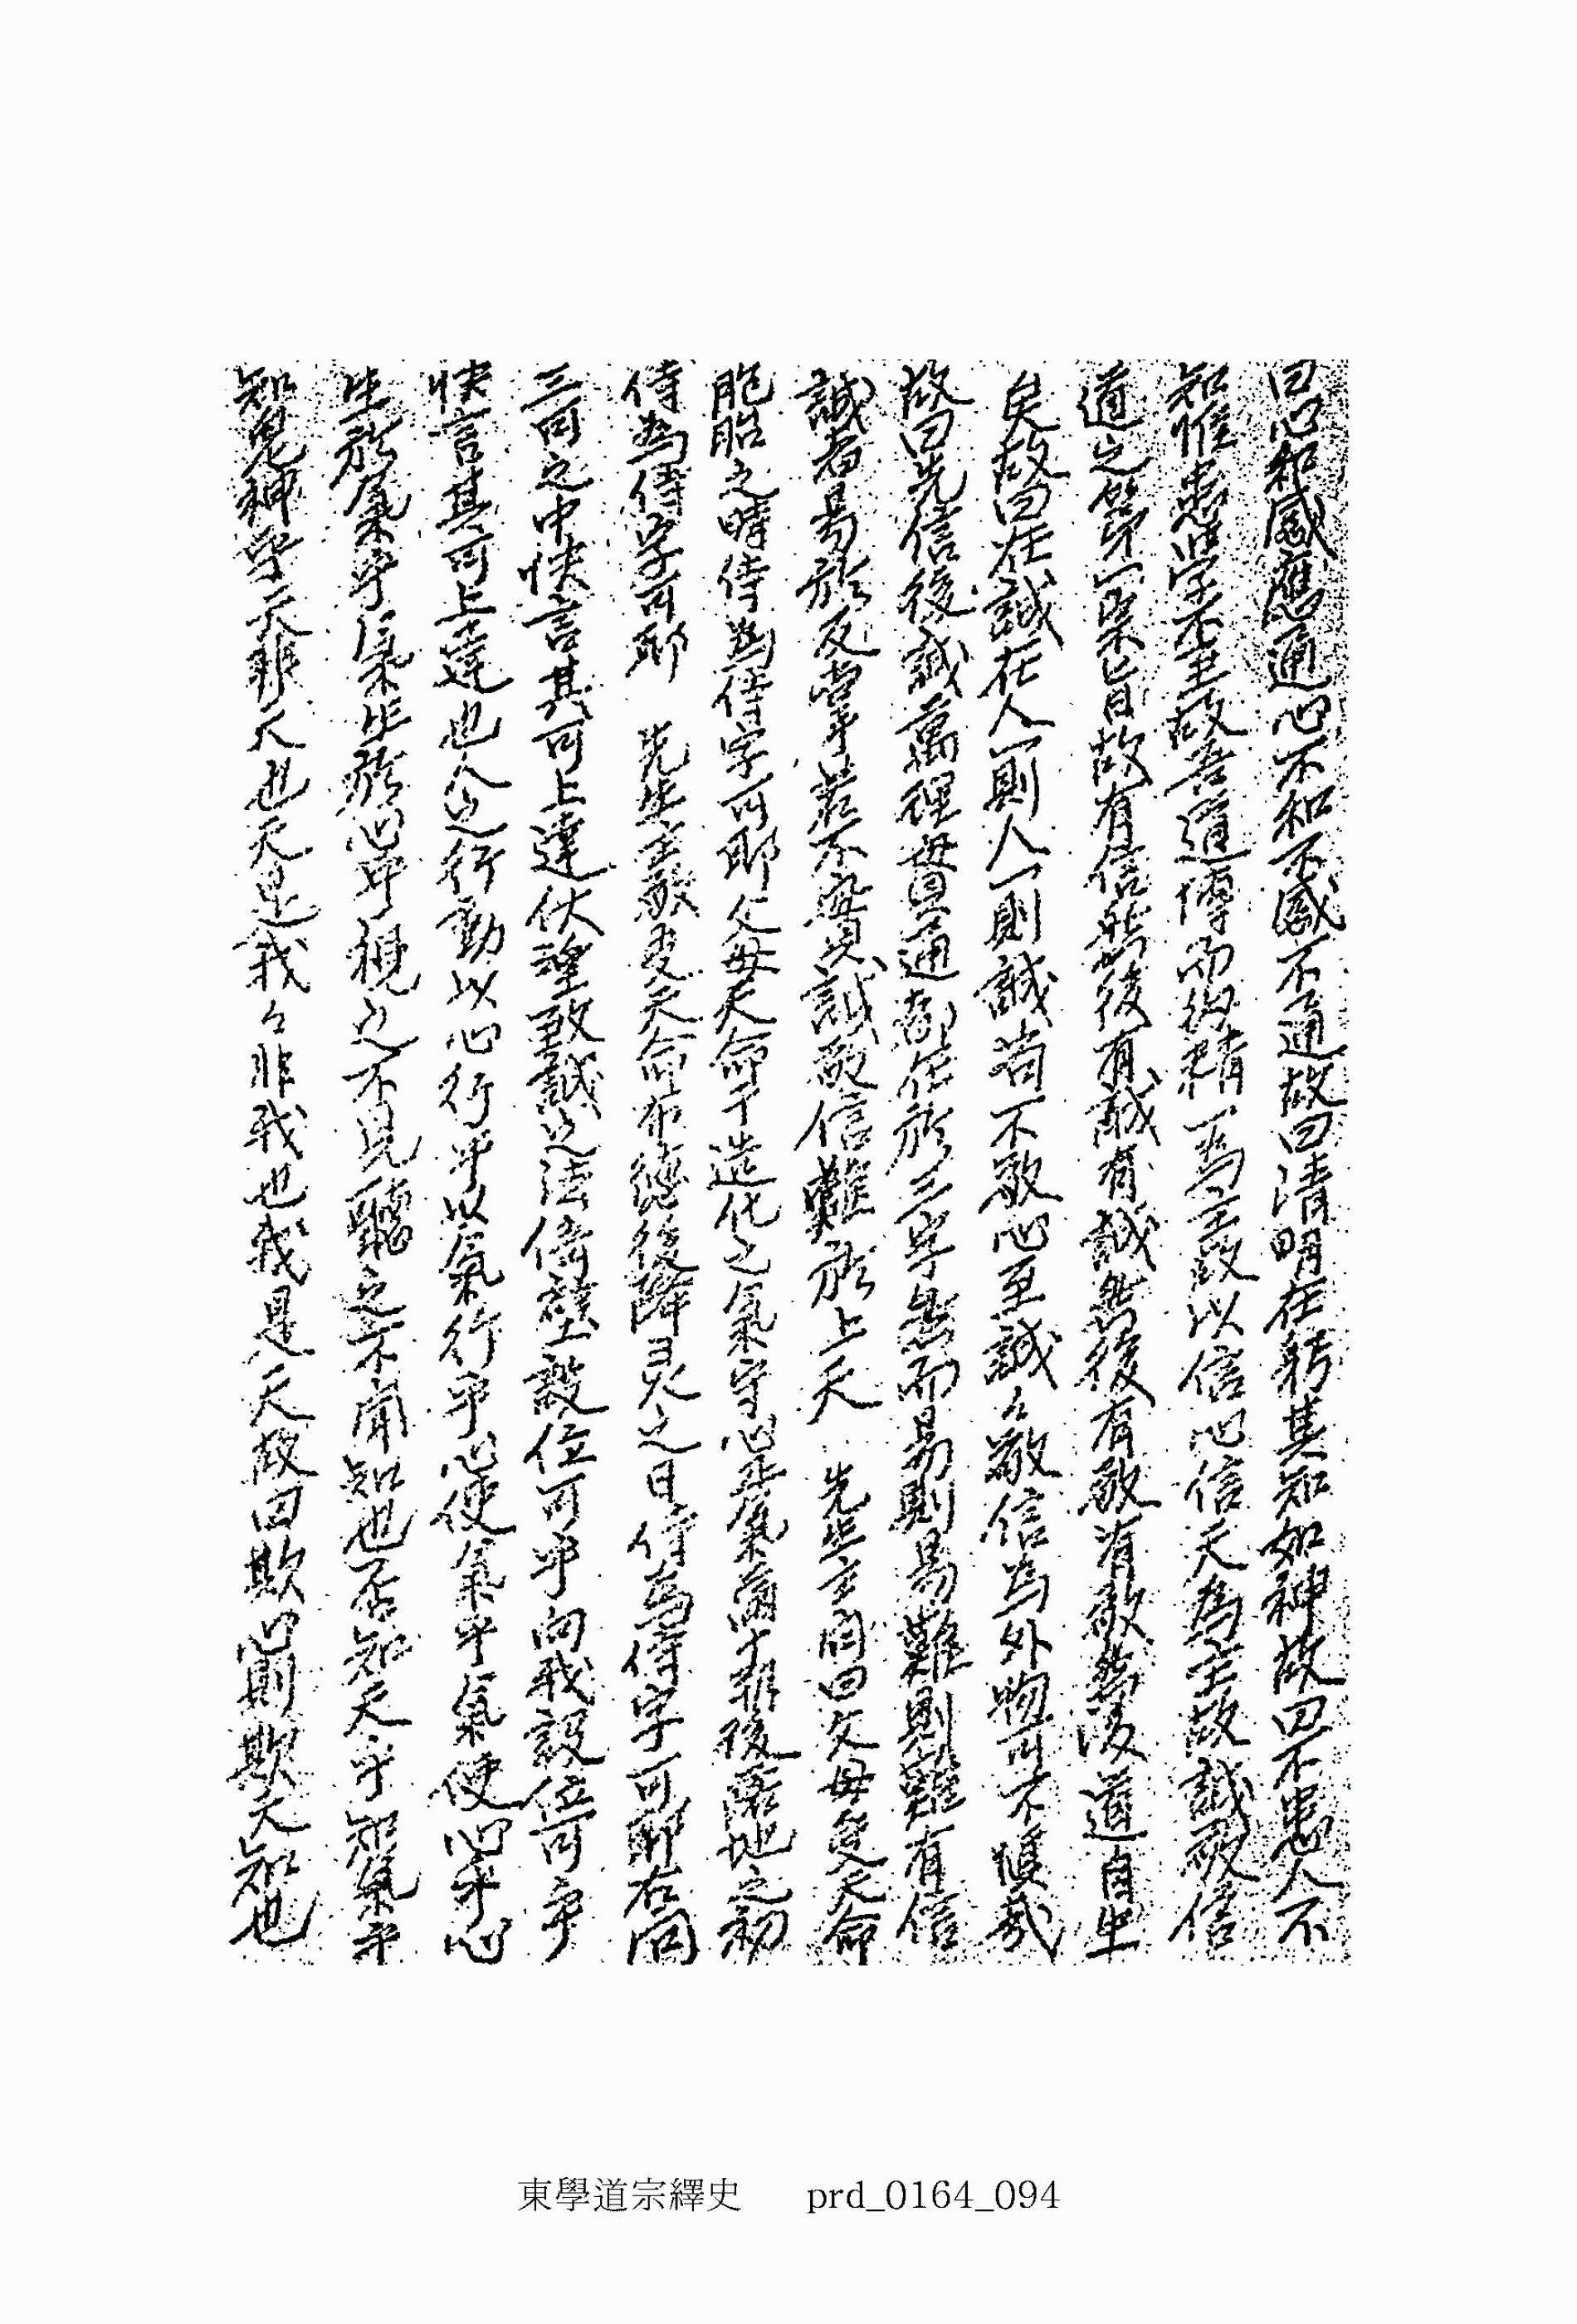 曰心和感應通心不和不感不通故曰清明在躬其知如神故曰不患人不
知惟患學不至故吾道博而約精一爲主故以信心信天爲主故誠敬信
道之第一宗旨故有信然後有誠有誠然後有敬有敬然後道自生
矣故曰在誠在人一則人一則誠尚不敬心至誠々敬信爲外物可不愼哉
故曰先信後誠萬理貫通都在於三字然而易則易難則難有信
誠者易於反掌若不實誠敬信難於上天 先生主問曰父母受天命
胞胎之時侍爲侍字可耶父母天命于造化之氣守心正氣滿十朔後落地之初
侍爲侍字可耶 先生主敬受天命布德後降灵之日侍爲侍字可耶右同
三可之中快言其可上達伏望致誠之法倚壁設位可乎向我設位可乎
快言其可上達也人之行動以心行乎以氣行乎心使氣乎氣使心乎心
生於氣乎氣生於心乎視之不見聽之不聞知也否知天乎知氣乎
知鬼神乎天非天也天是我々非我也我是天故曰欺心則欺天知也
東學道宗繹史 prd_0164_094